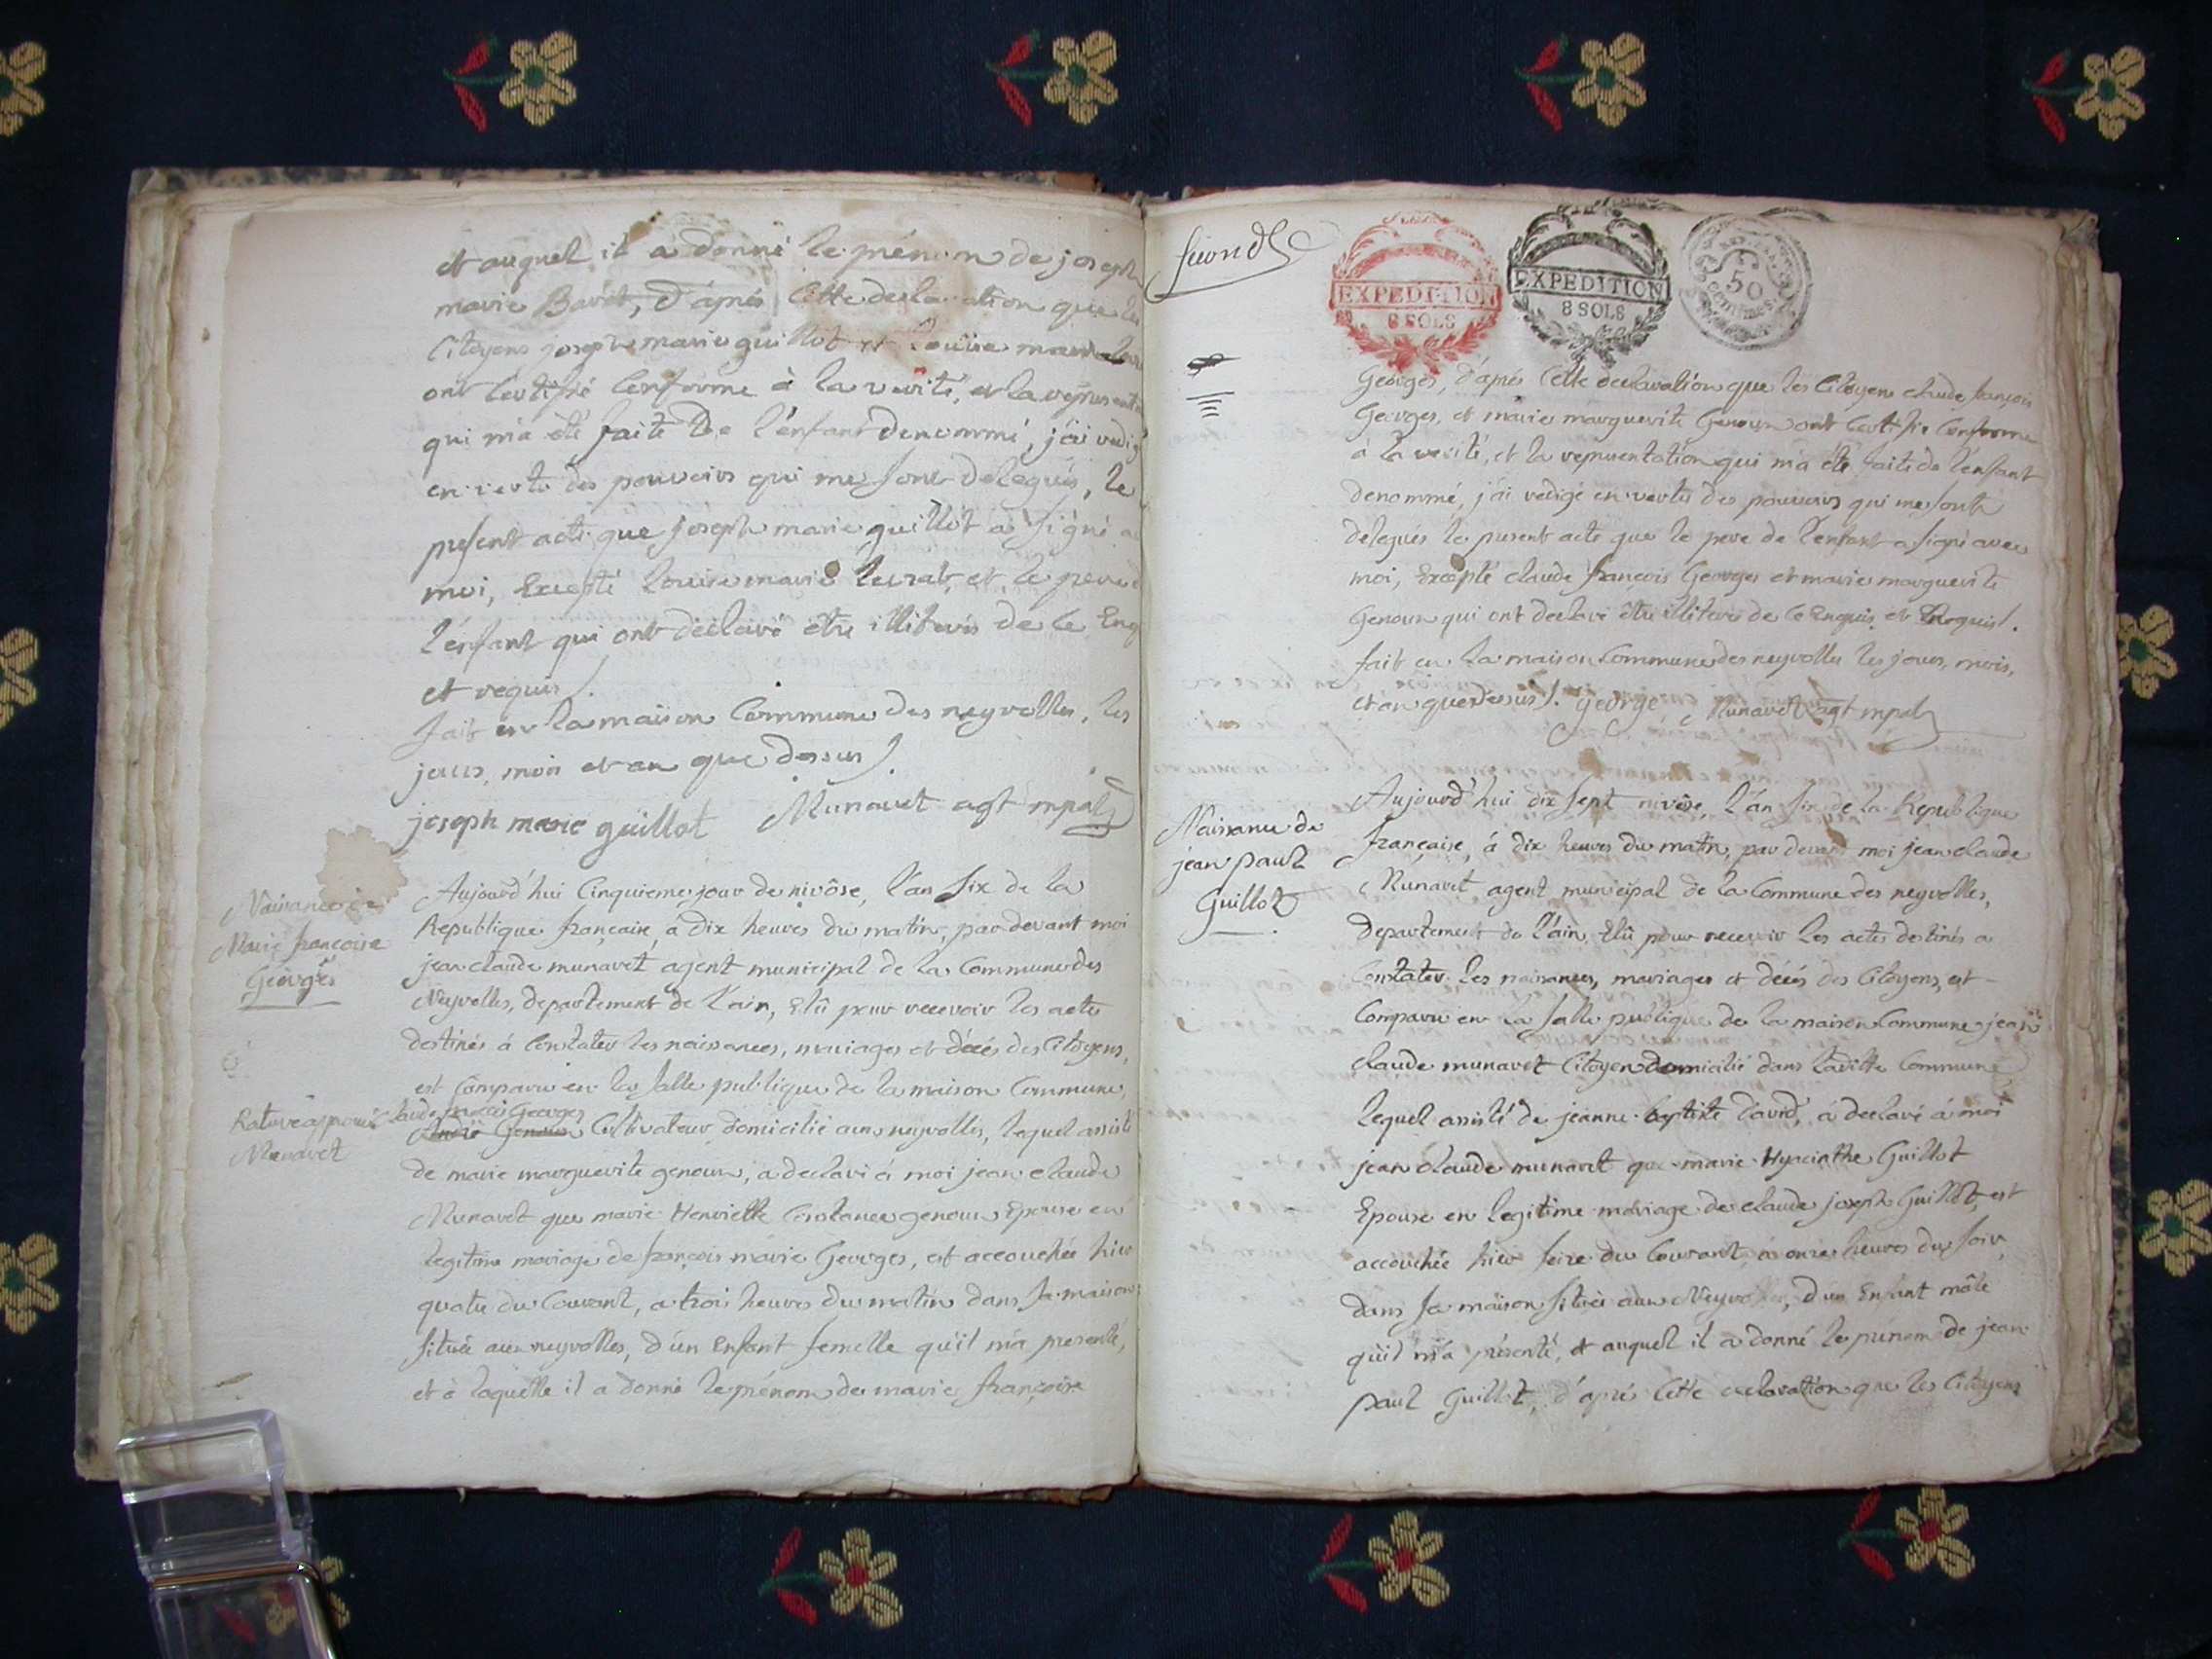 et auquel il a donné le prénom de joseph
marie Bavet, d'après Cette declaration que les
Citoyens joseph marie guillot et Louise marie
ont Certifié Conforme à la verité, et la
qui m'a été faite de l'enfant denommé, j'ai
en vertu des pouvoirs qui me sont delegués, le
present acte que joseph marie guillot a signé
moi, Excepté Louise marie levrat, et le pere
l'enfant qui ont déclaré être illiterés de ce
et requis /.
fait en la maison Commune des neyrolles, les
jours, mois et an que dessus /.
joseph marie guillot Munavet agt mpal
Naissance de
Marie françoise
Georges
Aujourd'hui Cinquieme jour de nivôse, l'an six de la
Republique française, à dix heures du matin, par devant moi
jean claude munavet agent municipal de la Commune des
Neyrolles, departement de l'ain, Elû pour recevoir les actes
destinés à Constater les naissances, mariages et décés des Citoyens,
est Comparu en la salle publique de la maison Commune,
Rature approuvée
Munavet
claude françois Georges
André Genoux Cultivateur domicilié aux neyrolles, lequel assisté
de marie marguerite genoux, a declaré à moi jean claude
Munavet que marie Henriette Constance genoux Epouse en
legitime mariage de françois marie Georges, est accouchée hier
quatre du Courant, a trois heures du matin dans sa maison
située aux neyrolles, d'un Enfant femelle qu'il m'a presenté,
et à laquelle il a donné le prénom de marie françoise
second
EXPEDITION
8 SOLS
EXPEDITION
8 SOLS
50
centimes
Georges, d'après Cette declaration que les Citoyens claude françois
Georges, et marie marguerite Genoux ont Certifié Conforme
à la verité, et la representation qui m'a été faite de l'enfant
denommé, j'ai redigé en vertu des pouvoirs qui me sont
delegués le present acte que le pere de l'enfant a signé avec
moi, Excepté claude françois Georges et marie marguerite
Genoux qui ont declaré être illiterés de ce Enquis et Requis /.
fait en la maison Commune des neyrolles les jours, mois,
et an que dessus /. george Munavet agt mpal
Naissance de
jean paul
Guillot
Aujourd'hui dix sept nivôse, l'an six de la Republique
française, à dix heures du matin, par devant moi jean claude
Munavet agent municipal de la Commune des neyrolles,
departement de l'ain, Elû pour recevoir les actes destinés a
Constater les naissances, mariages et décés des Citoyens, est
Comparu en la salle publique de la maison Commune jean
claude munavet Citoyen domicilié dans ladite Commune
lequel assisté de jeanne baptiste david, a declaré à moi
jean claude munavet que marie Hyacinthe Guillot
Epouse en legitime mariage de claude joseph Guillot, est
accouchée hier seize du Courant, à onze heures du soir,
dans sa maison située aux Neyrolles, d'un Enfant mâle
qu'il m'a présenté, et auquel il a donné le prénom de jean
paul Guillot, d'après Cette declaration que les Citoyens